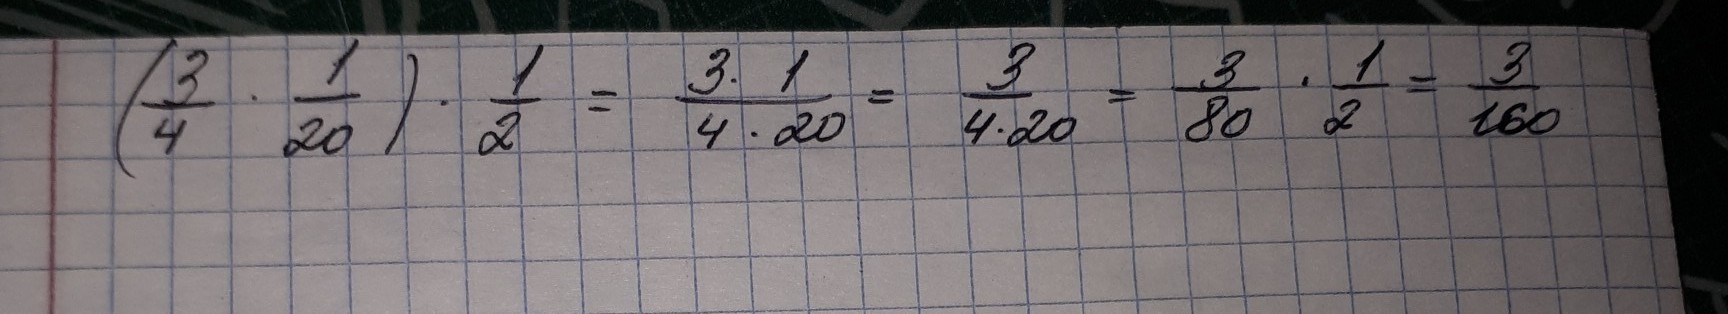 (3/4 · 1/20) · 1/2 = 3·1/4·20 = 3/4·20 = 3/80 · 1/2 = 3/160